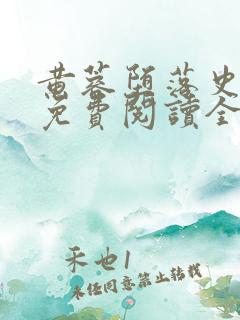 黄蓉堕落史
免費閱讀全
禾也1
未经同意禁止转载